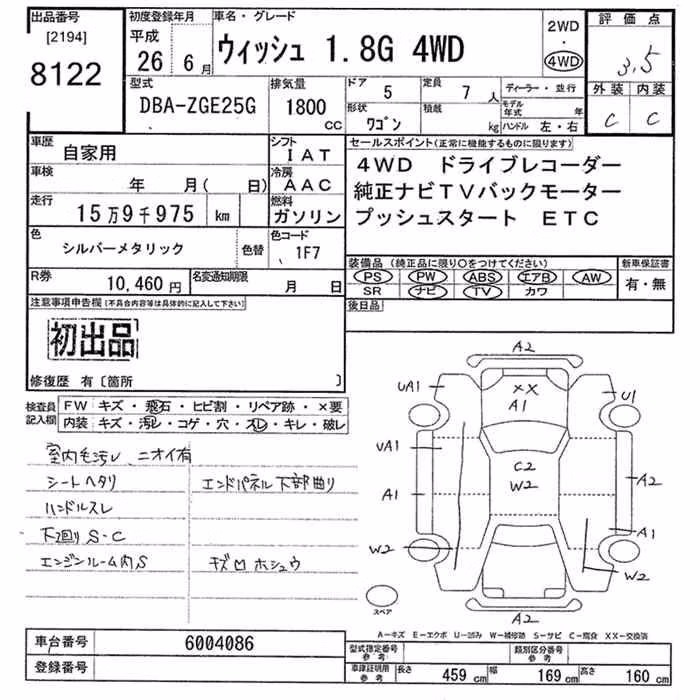 出品番号
[2194]
8122
初度登録年月
平成
26 6 月
車名・グレード
ウィッシュ 1.8G 4WD
2WD
・
4WD
評価点
3.5
外装 内装
C C
型式
DBA-ZGE25G
排気量
1800 CC
ドア 5
定員 7 人
ディーラー・並行
形状 ワゴン
積載 kg
モデル年式 年
ハンドル 左・右
車歴 自家用
シフト IAT
車検 年 月( 日)
冷房 AAC
走行 15万9千975 km
燃料 ガソリン
セールスポイント(正常に機能するものに限ります)
4WD ドライブレコーダー
純正ナビTVバックモーター
プッシュスタート ETC
色 シルバーメタリック 色替
色コード 1F7
R券 10,460円
名変通知期限 月 日
装備品 (純正品に限り○をつけてください)
PS PW ABS エアB AW
SR ナビ TV カワ
新車保証書
有・無
後日品
注意事項申告欄(不具合内容等は具体的に記入して下さい)
初出品
修復歴 有〔箇所 〕
検査員記入欄
FW キズ・飛石・ヒビ割・リペア跡・×要
内装 キズ・汚レ・コゲ・穴・スレ・キレ・破レ
室内毛汚レ、ニオイ有
シートヘタリ
エンドパネル下部曲り
ハンドルスレ
下回りS-C
エンジンルーム内S
キズ凹ホシュウ
A2
UA1
XX
A1
U1
UA1
C2
W2
A1
A2
A1
W2
W2
A2
スペア
A−キズ E−エクボ U−凹み W−補修跡 S−サビ C−腐食 XX−交換済
車台番号 6004086
登録番号
型式指定番号 参考
類別区分番号 参考
車庫証明用 参考
長さ 459 cm
幅 169 cm
高さ 160 cm